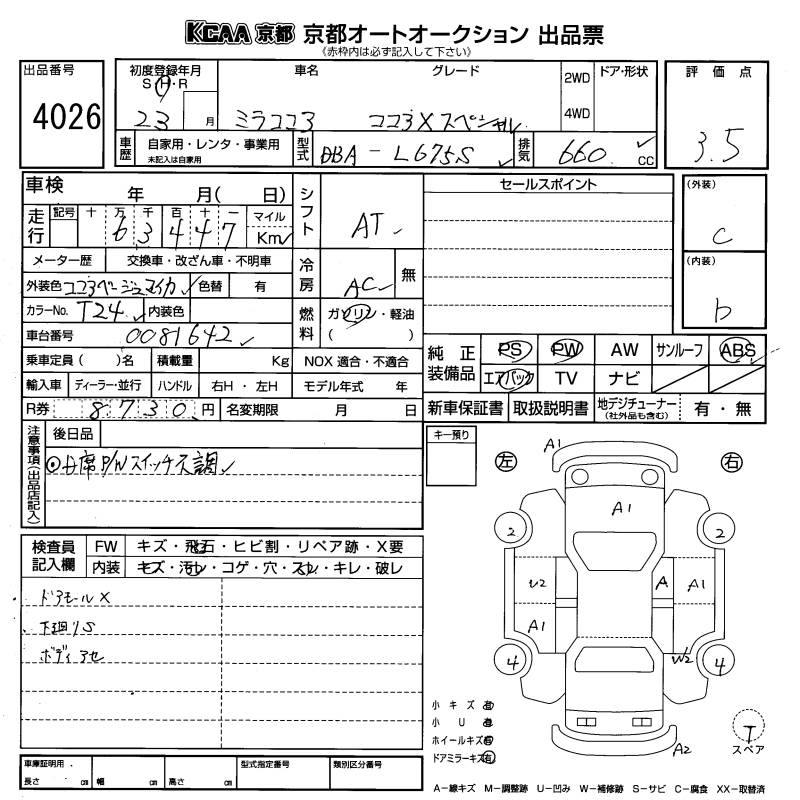 KCAA 京都 京都オートオークション 出品票
(赤枠内は必ず記入して下さい)
出品番号 4026
初度登録年月 S・H・R 23 月
車名 ミラココア
グレード ココアXスペシャル
2WD 4WD
ドア・形状
評価点 3.5
車歴 自家用・レンタ・事業用 未記入は自家用
型式 DBA-L675S
排気 660 cc
車検 年 月( 日)
シフト AT
セールスポイント
(外装) C
(内装) b
走行 記号 十 万 千 百 十 一 マイル Km
6 3 4 4 7
メーター歴 交換車・改ざん車・不明車
冷房 AC 無
外装色 ココアベージュマイカ 色替 有
カラーNo. T24 内装色
燃料 ガソリン・軽油 ( )
車台番号 0081642
乗車定員( )名 積載量 Kg NOX 適合・不適合
輸入車 ディーラー・並行 ハンドル 右H・左H モデル年式 年
R券 8730 円 名変期限 月 日
純正装備品 PS PW AW サンルーフ ABS
エアバック TV ナビ
新車保証書 取扱説明書 地デジチューナー (社外品も含む) 有・無
注意事項(出品店記入) 後日品
P/Wスイッチ
キー預り
検査員記入欄 FW キズ・飛石・ヒビ割・リペア跡・X要
内装 キズ・汚レ・コゲ・穴・スレ・キレ・破レ
ドアモールX
下廻りS
ボディアセ
左 右
A1
A1
2 2
U2 A A1
A1
4 W2 4
A2
小キズ 有
小U 有
ホイールキズ 有
ドアミラーキズ 有
T スペア
車庫証明用 長さ cm 幅 cm 高さ cm 型式指定番号 類別区分番号
A−線キズ M−調整跡 U−凹み W−補修跡 S−サビ C−腐食 XX−取替済